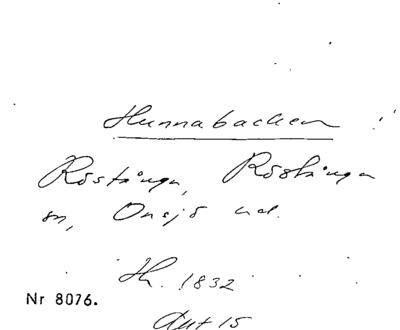 Hunnabacken
Röstånga, Röstånga
sn, Onsjö hd.
H. 1832
Nr 8076.
Akt 15